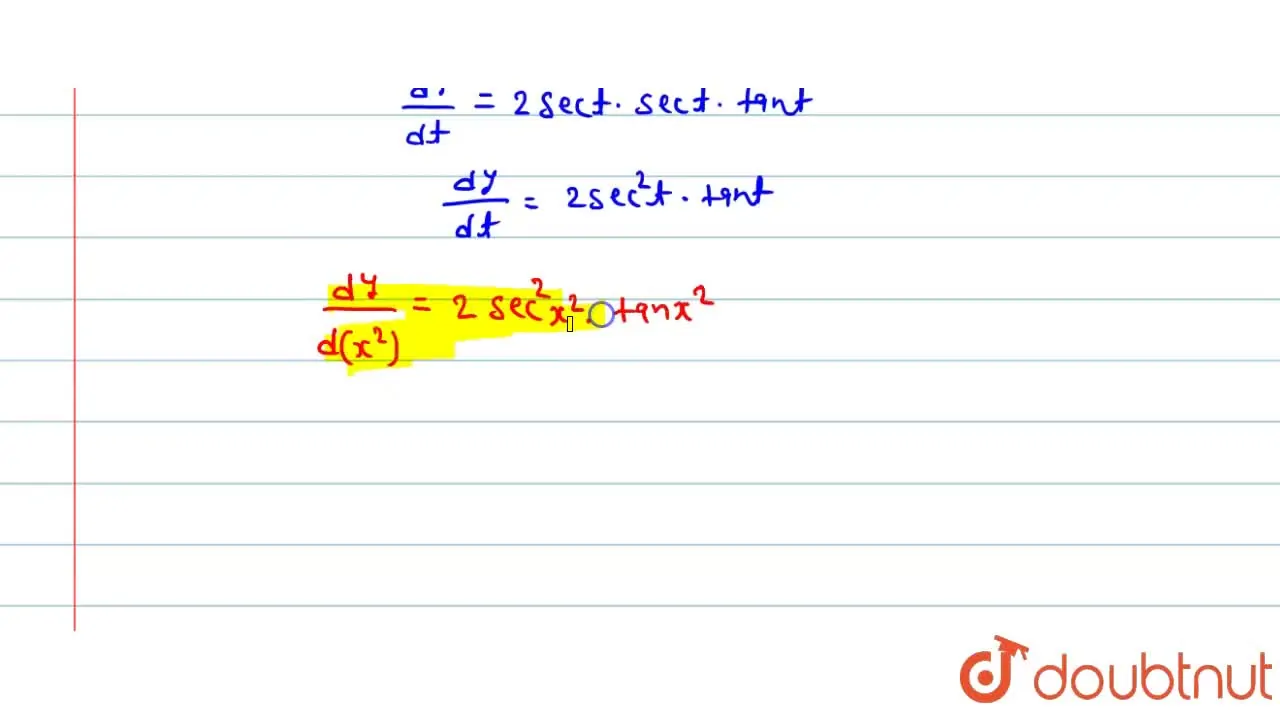 dy/dt = 2 sec t · sec t · tan t
dy/dt = 2 sec²t · tan t
dy/d(x²) = 2 sec²x² · tan x²
doubtnut